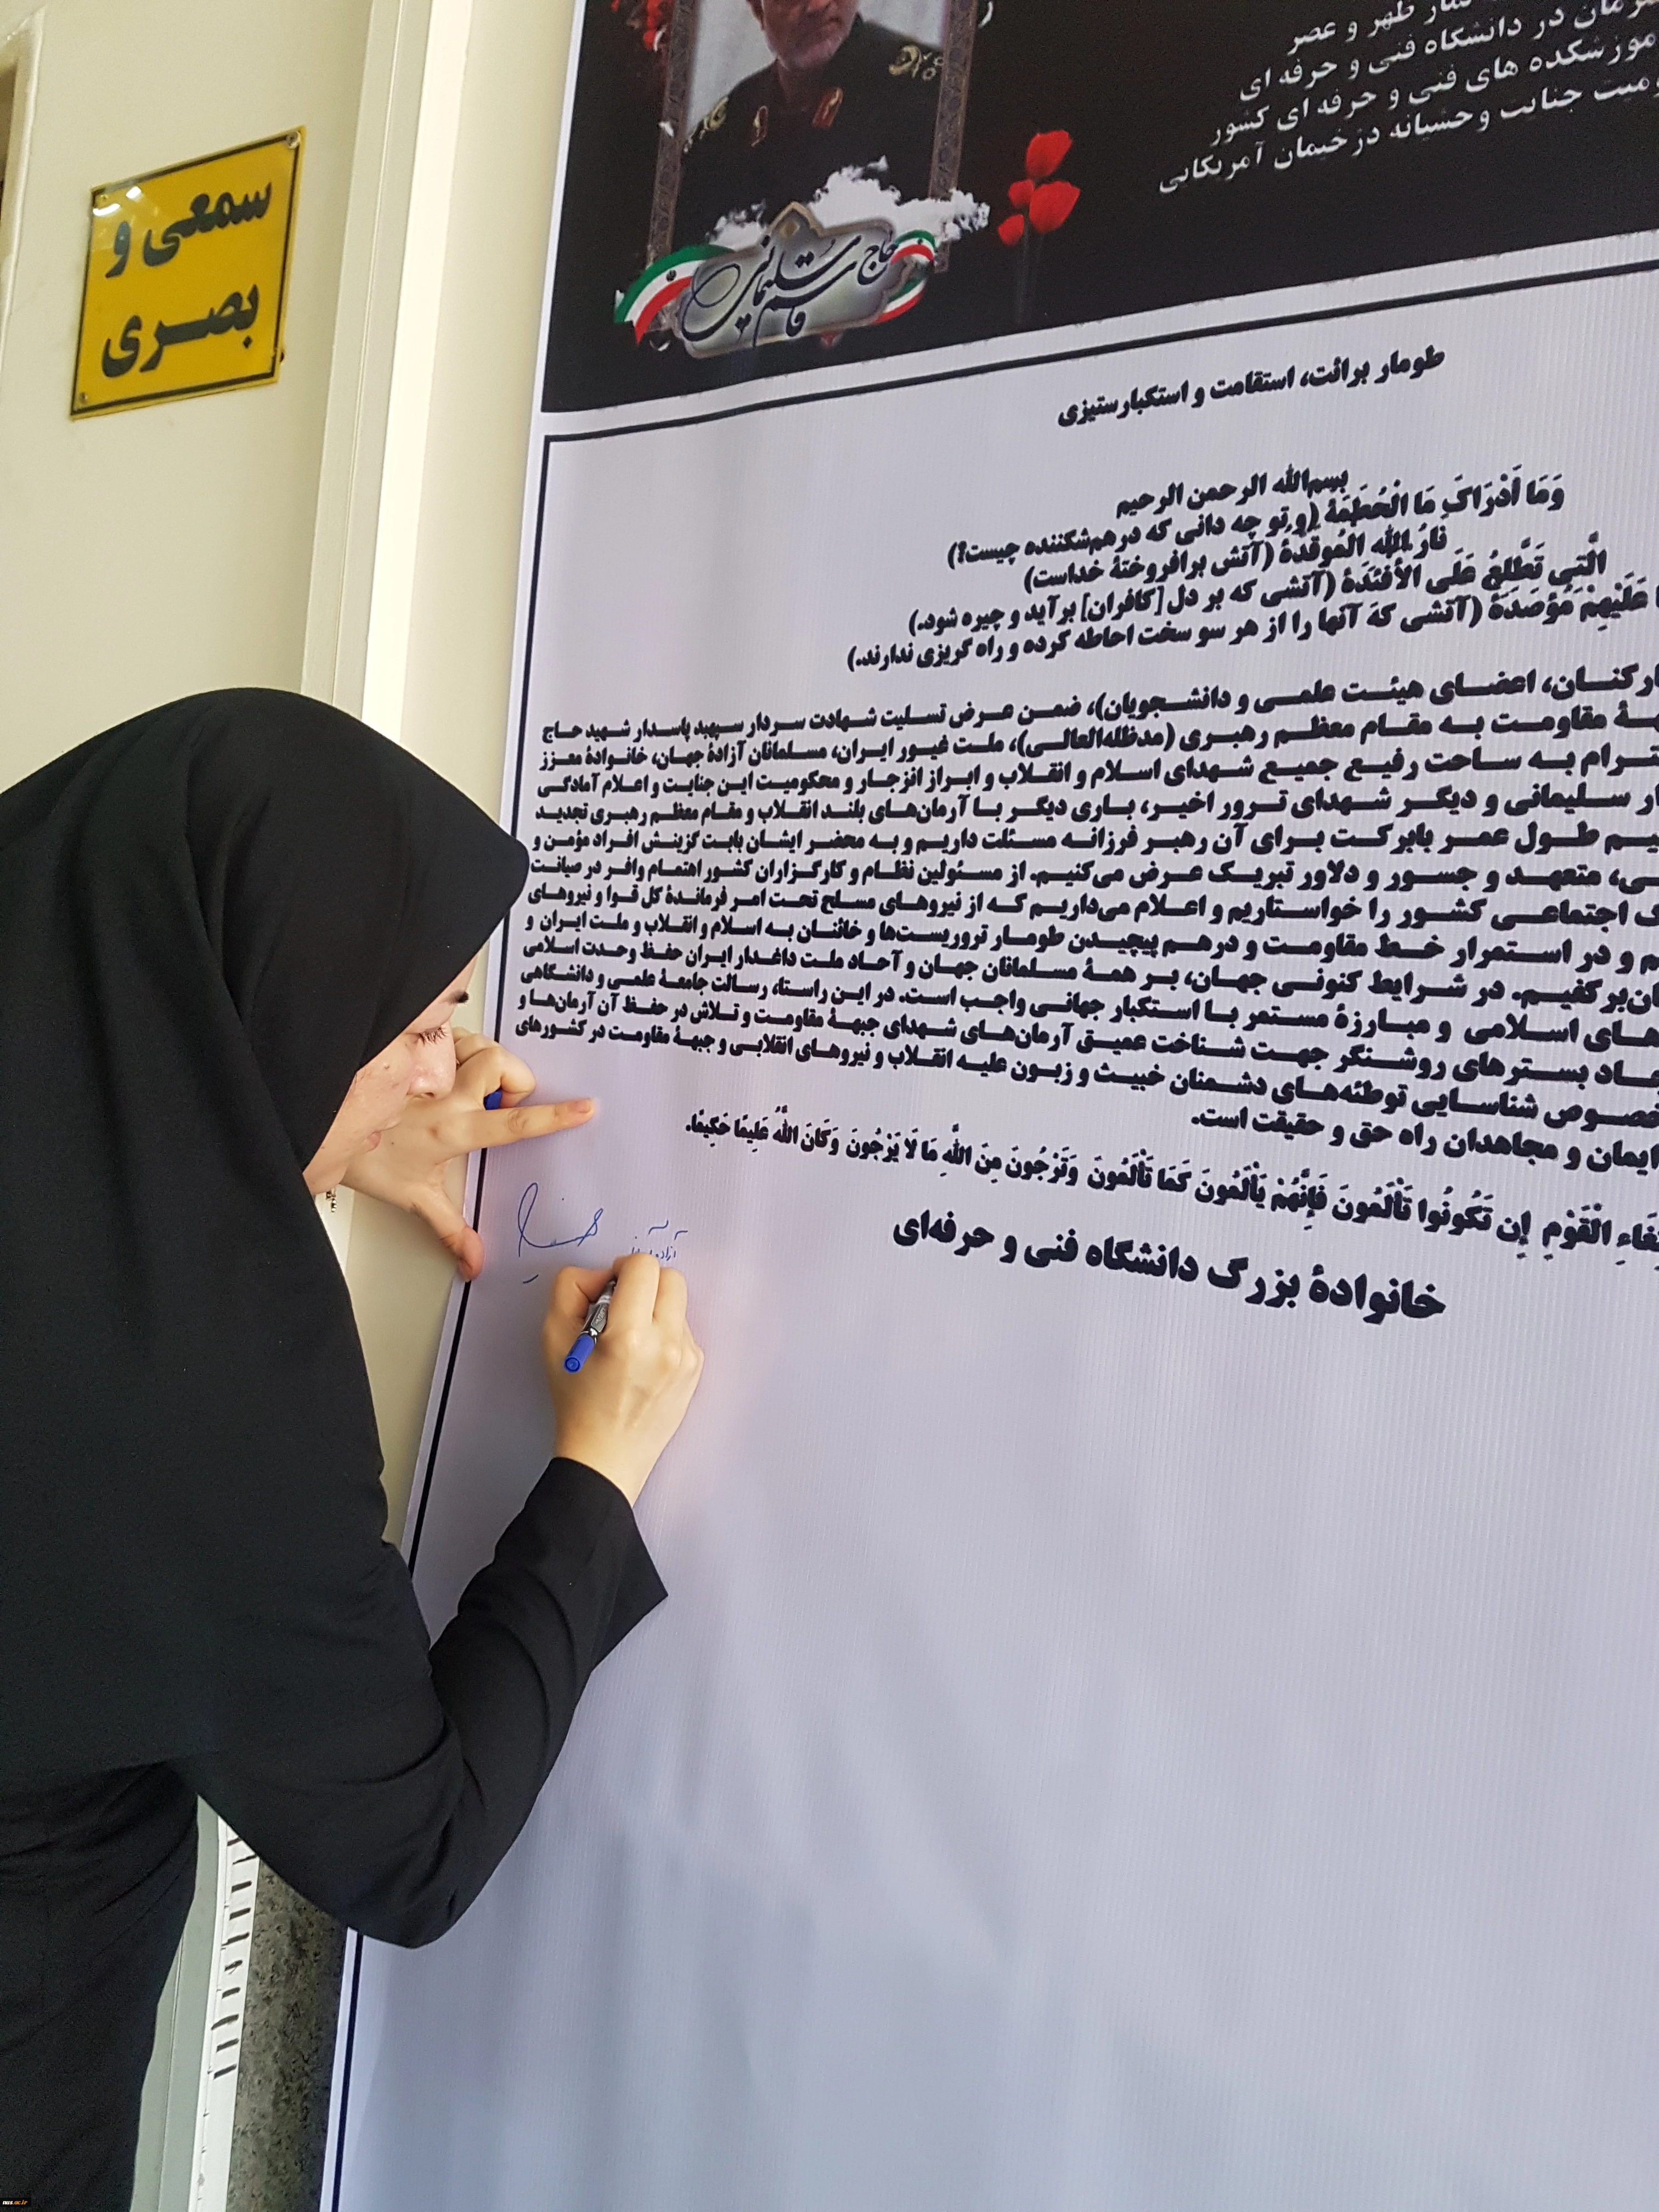 سمعی و
بصری
ظهر و عصر
در دانشگاه فنی و حرفه ای
های فنی و حرفه ای کشور
جنایت وحشیانه دژخیمان آمریکایی
حاج قاسم سلیمانی
طومار برائت، استقامت و استکبارستیزی
بسم‌الله الرحمن الرحیم
وَمَا أَدْرَاكَ مَا الْحُطَمَةُ (و تو چه دانی که درهم‌شکننده چیست؟)
نارُ اللهِ المُوقَدَةُ (آتش برافروختهٔ خداست)
الَّتِي تَطَّلِعُ عَلَى الْأَفْئِدَةِ (آتشی که بر دل [کافران] برآید و چیره شود.)
عَلَيْهِمْ مُؤْصَدَةٌ (آتشی که آنها را از هر سو سخت احاطه کرده و راه گریزی ندارند.)
اعضای هیئت علمی و دانشجویان)، ضمن عرض تسلیت شهادت سردار سپهبد پاسدار شهید حاج
مقاومت به مقام معظم رهبری (مدظله‌العالی)، ملت غیور ایران، مسلمانان آزادهٔ جهان، خانوادهٔ معزز
به ساحت رفیع جمیع شهدای اسلام و انقلاب و ابراز انزجار و محکومیت این جنایت و اعلام آمادگی
سلیمانی و دیگر شهدای ترور اخیر، باری دیگر با آرمان‌های بلند انقلاب و مقام معظم رهبری تجدید
طول عمر بابرکت برای آن رهبر فرزانه مسئلت داریم و به محضر ایشان بابت گزینش افراد مؤمن و
متعهد و جسور و دلاور تبریک عرض می‌کنیم. از مسئولین نظام و کارگزاران کشور اهتمام وافر در صیانت
اجتماعی کشور را خواستاریم و اعلام می‌داریم که از نیروهای مسلح تحت امر فرماندهٔ کل قوا و نیروهای
و در استمرار خط مقاومت و درهم پیچیدن طومار تروریست‌ها و خائنان به اسلام و انقلاب و ملت ایران و
در شرایط کنونی جهان، بر همهٔ مسلمانان جهان و آحاد ملت داغدار ایران حفظ وحدت اسلامی
اسلامی و مبارزهٔ مستمر با استکبار جهانی واجب است. در این راستا، رسالت جامعهٔ علمی و دانشگاهی
بسترهای روشنگر جهت شناخت عمیق آرمان‌های شهدای جبههٔ مقاومت و تلاش در حفظ آن آرمان‌ها و
شناسایی توطئه‌های دشمنان خبیث و زبون علیه انقلاب و نیروهای انقلابی و جبههٔ مقاومت در کشورهای
ایمان و مجاهدان راه حق و حقیقت است.
الْقَوْمِ إِن تَكُونُوا تَأْلَمُونَ فَإِنَّهُمْ يَأْلَمُونَ كَمَا تَأْلَمُونَ وَتَرْجُونَ مِنَ اللَّهِ مَا لَا يَرْجُونَ وَكَانَ اللَّهُ عَلِيمًا حَكِيمًا.
خانوادهٔ بزرگ دانشگاه فنی و حرفه‌ای